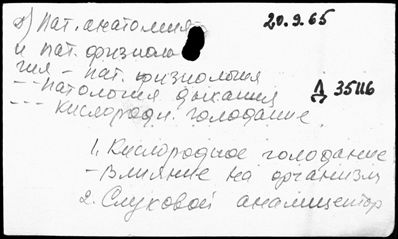 8) Пат. анатомия
20.9.65
и пат. физиоло
гия - пат. физиология
-- патология дыхания
Д 35116
--- кислородн. голодание.
1. Кислородное голодание
- Влияние на организм
2. Слуховой анализатор